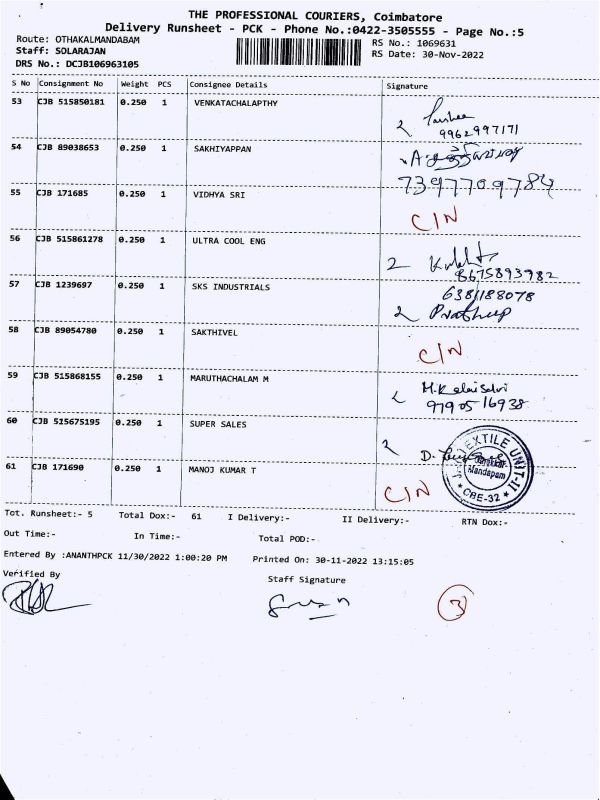 THE PROFESSIONAL COURIERS, Coimbatore
Delivery Runsheet - PCK - Phone No.:0422-3505555 - Page No.:5
Route: OTHAKALMANDABAM
RS No.: 1069631
Staff: SOLARAJAN
RS Date: 30-Nov-2022
DRS No.: DCJB106963105
S No Consignment No Weight PCS Consignee Details Signature
53 CJB 515850181 0.250 1 VENKATACHALAPTHY
2
9962997171
54 CJB 89038653 0.250 1 SAKHIYAPPAN
7397709784
55 CJB 171685 0.250 1 VIDHYA SRI
C/N
56 CJB 515861278 0.250 1 ULTRA COOL ENG
2
8675893982
57 CJB 1239697 0.250 1 SKS INDUSTRIALS
6381188078
2 Pratheep
58 CJB 89054780 0.250 1 SAKTHIVEL
C/N
59 CJB 515868155 0.250 1 MARUTHACHALAM M
M.Kalaiselvi
2 9790516938
60 CJB 515675195 0.250 1 SUPER SALES
2
D.
TEXTILE UNIT-II
Mandapam
CBE-32
61 CJB 171690 0.250 1 MANOJ KUMAR T
C/N
Tot. Runsheet:- 5 Total Dox:- 61 I Delivery:- II Delivery:- RTN Dox:-
Out Time:- In Time:- Total POD:-
Entered By :ANANTHPCK 11/30/2022 1:00:20 PM Printed On: 30-11-2022 13:15:05
Verified By
Staff Signature
3